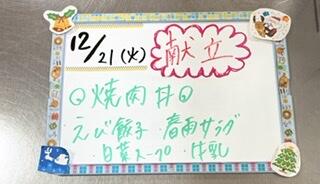 12/21(火) 献立
◎焼肉丼◎
・えび餃子・春雨サラダ
・白菜スープ・牛乳